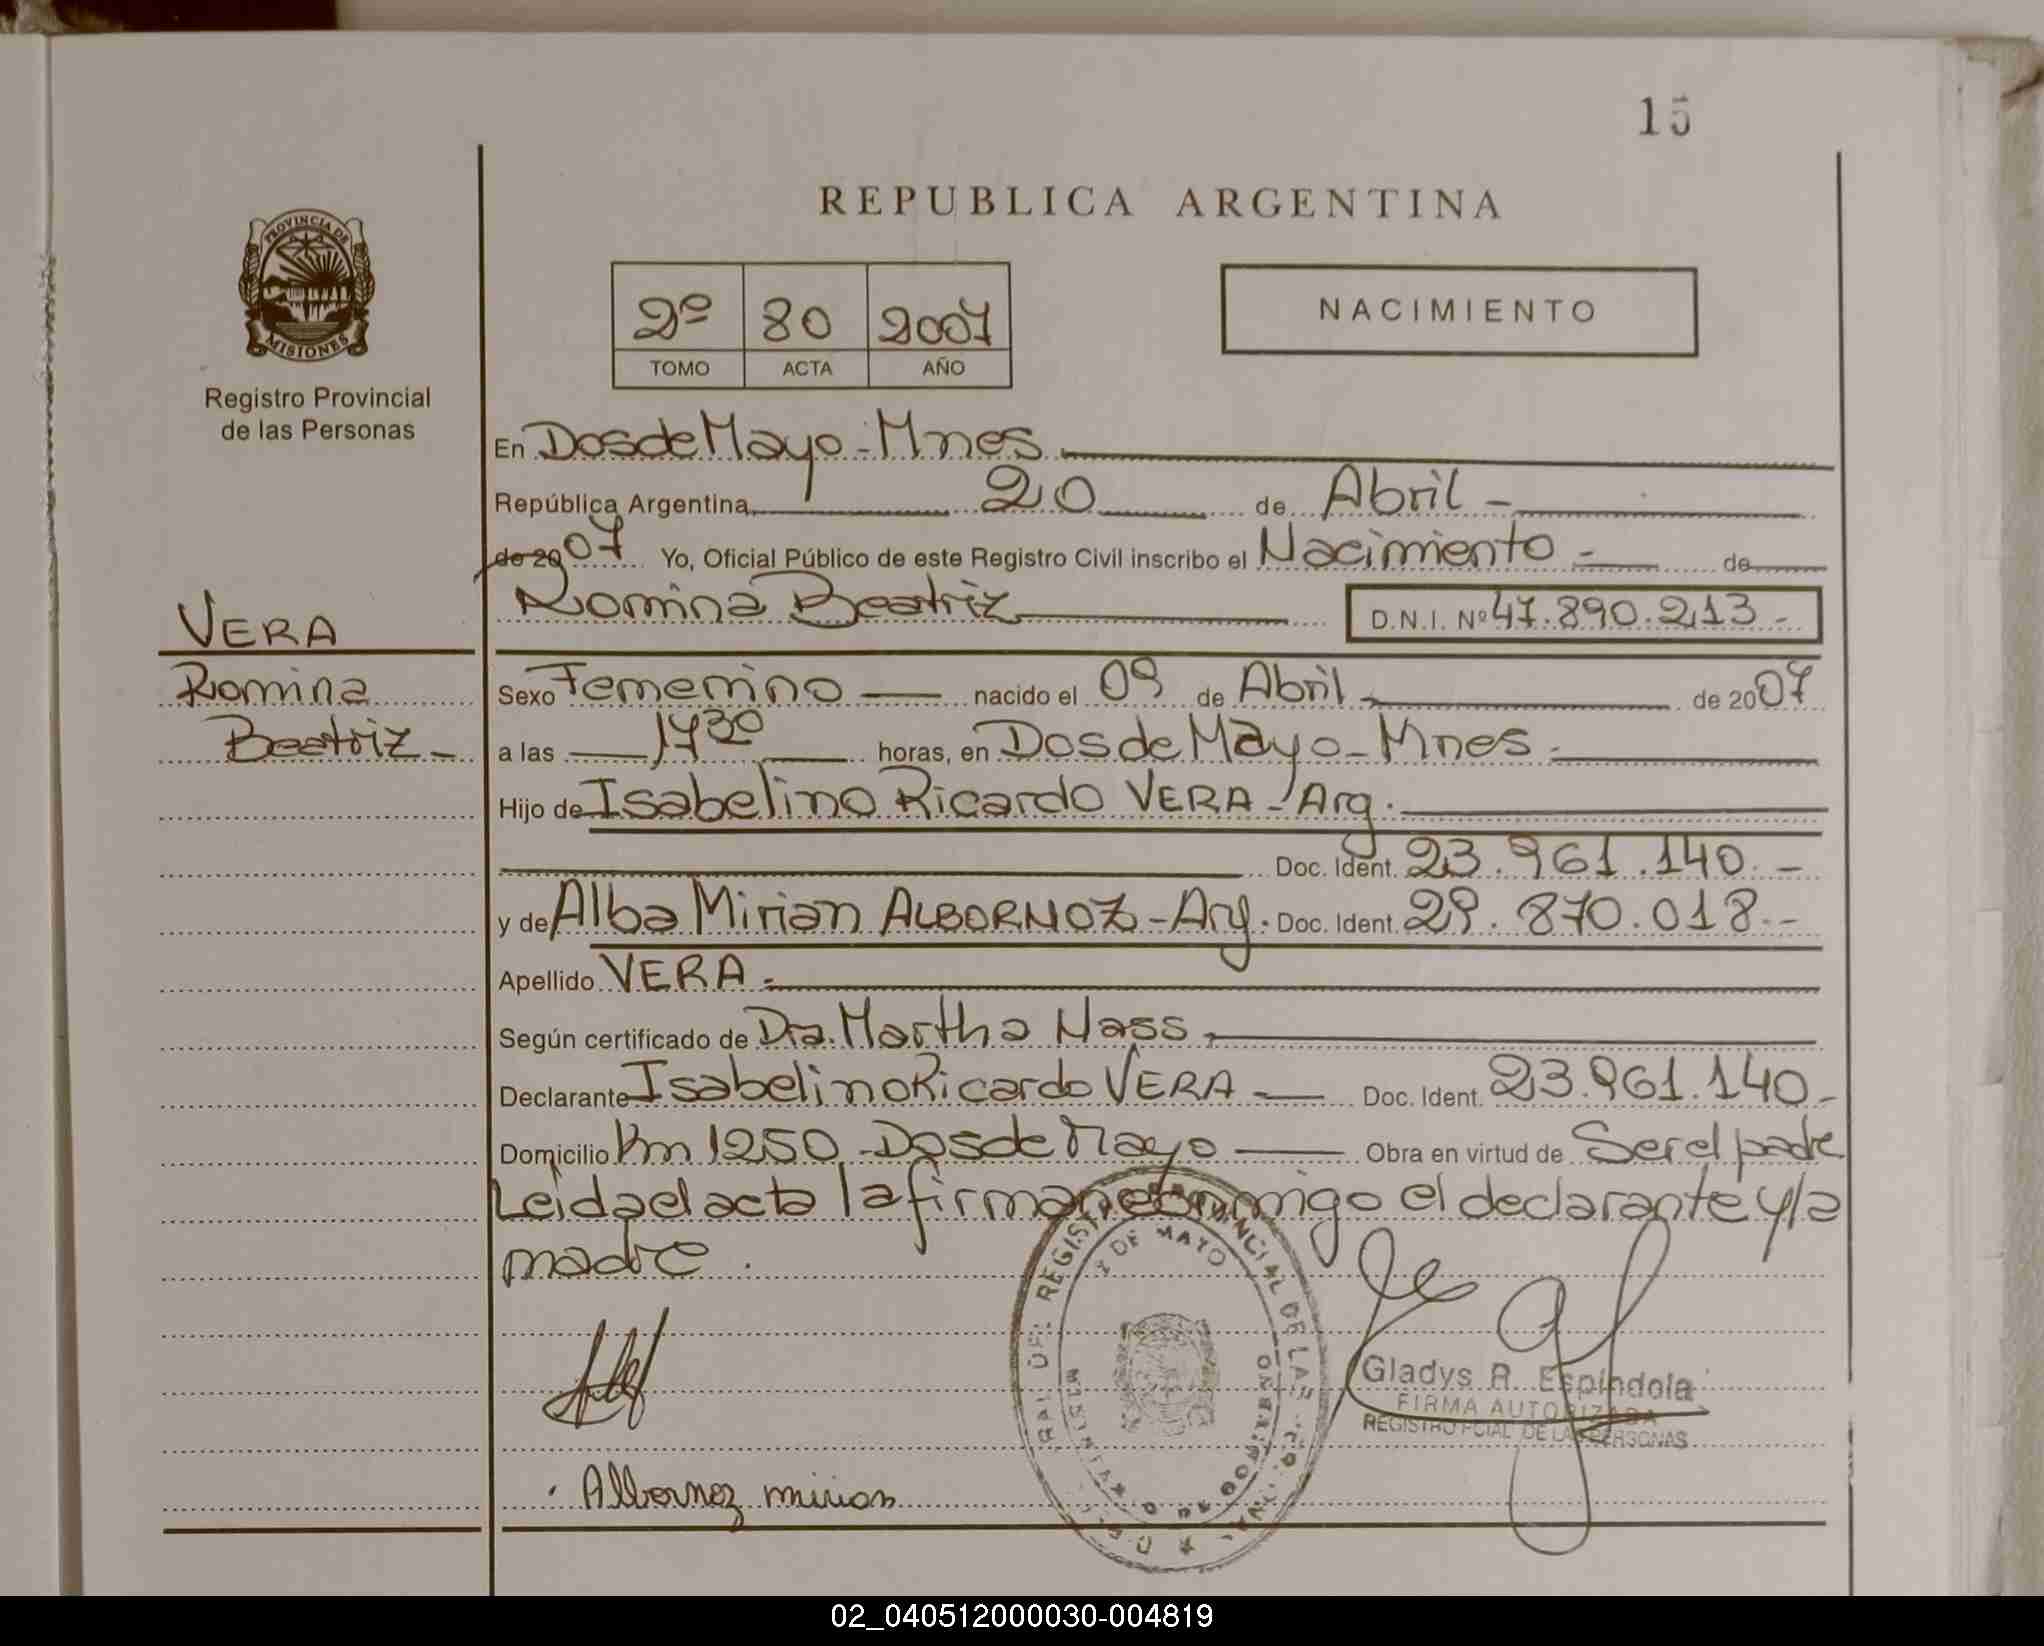 15
REPUBLICA ARGENTINA
PROVINCIA DE
MISIONES
Registro Provincial
de las Personas
2º 80 2007
TOMO ACTA AÑO
NACIMIENTO
En Dos de Mayo - Mnes
República Argentina, 20 de Abril -
de 2007 Yo, Oficial Público de este Registro Civil inscribo el Nacimiento - de
Romina Beatriz D.N.I. Nº 47.890.213 -
VERA
Romina
Beatriz -
Sexo Femenino nacido el 09 de Abril de 2007
a las 1730 horas, en Dos de Mayo - Mnes.
Hijo de Isabelino Ricardo VERA - Arg.
Doc. Ident. 23.961.140. -
y de Alba Mirian ALBORNOZ - Arg. Doc. Ident. 29.870.018. -
Apellido VERA.
Según certificado de Dra. Martha Nass.
Declarante Isabelino Ricardo VERA Doc. Ident. 23.961.140. -
Domicilio Km 1250 - Dos de Mayo Obra en virtud de Ser el padre
Leida el acta la firman conmigo el declarante y la
madre.
DE MAYO
Gladys R. Espindola
FIRMA AUTORIZADA
REGISTRO PCIAL. DE LAS PERSONAS
Albornoz mirian
02_040512000030-004819